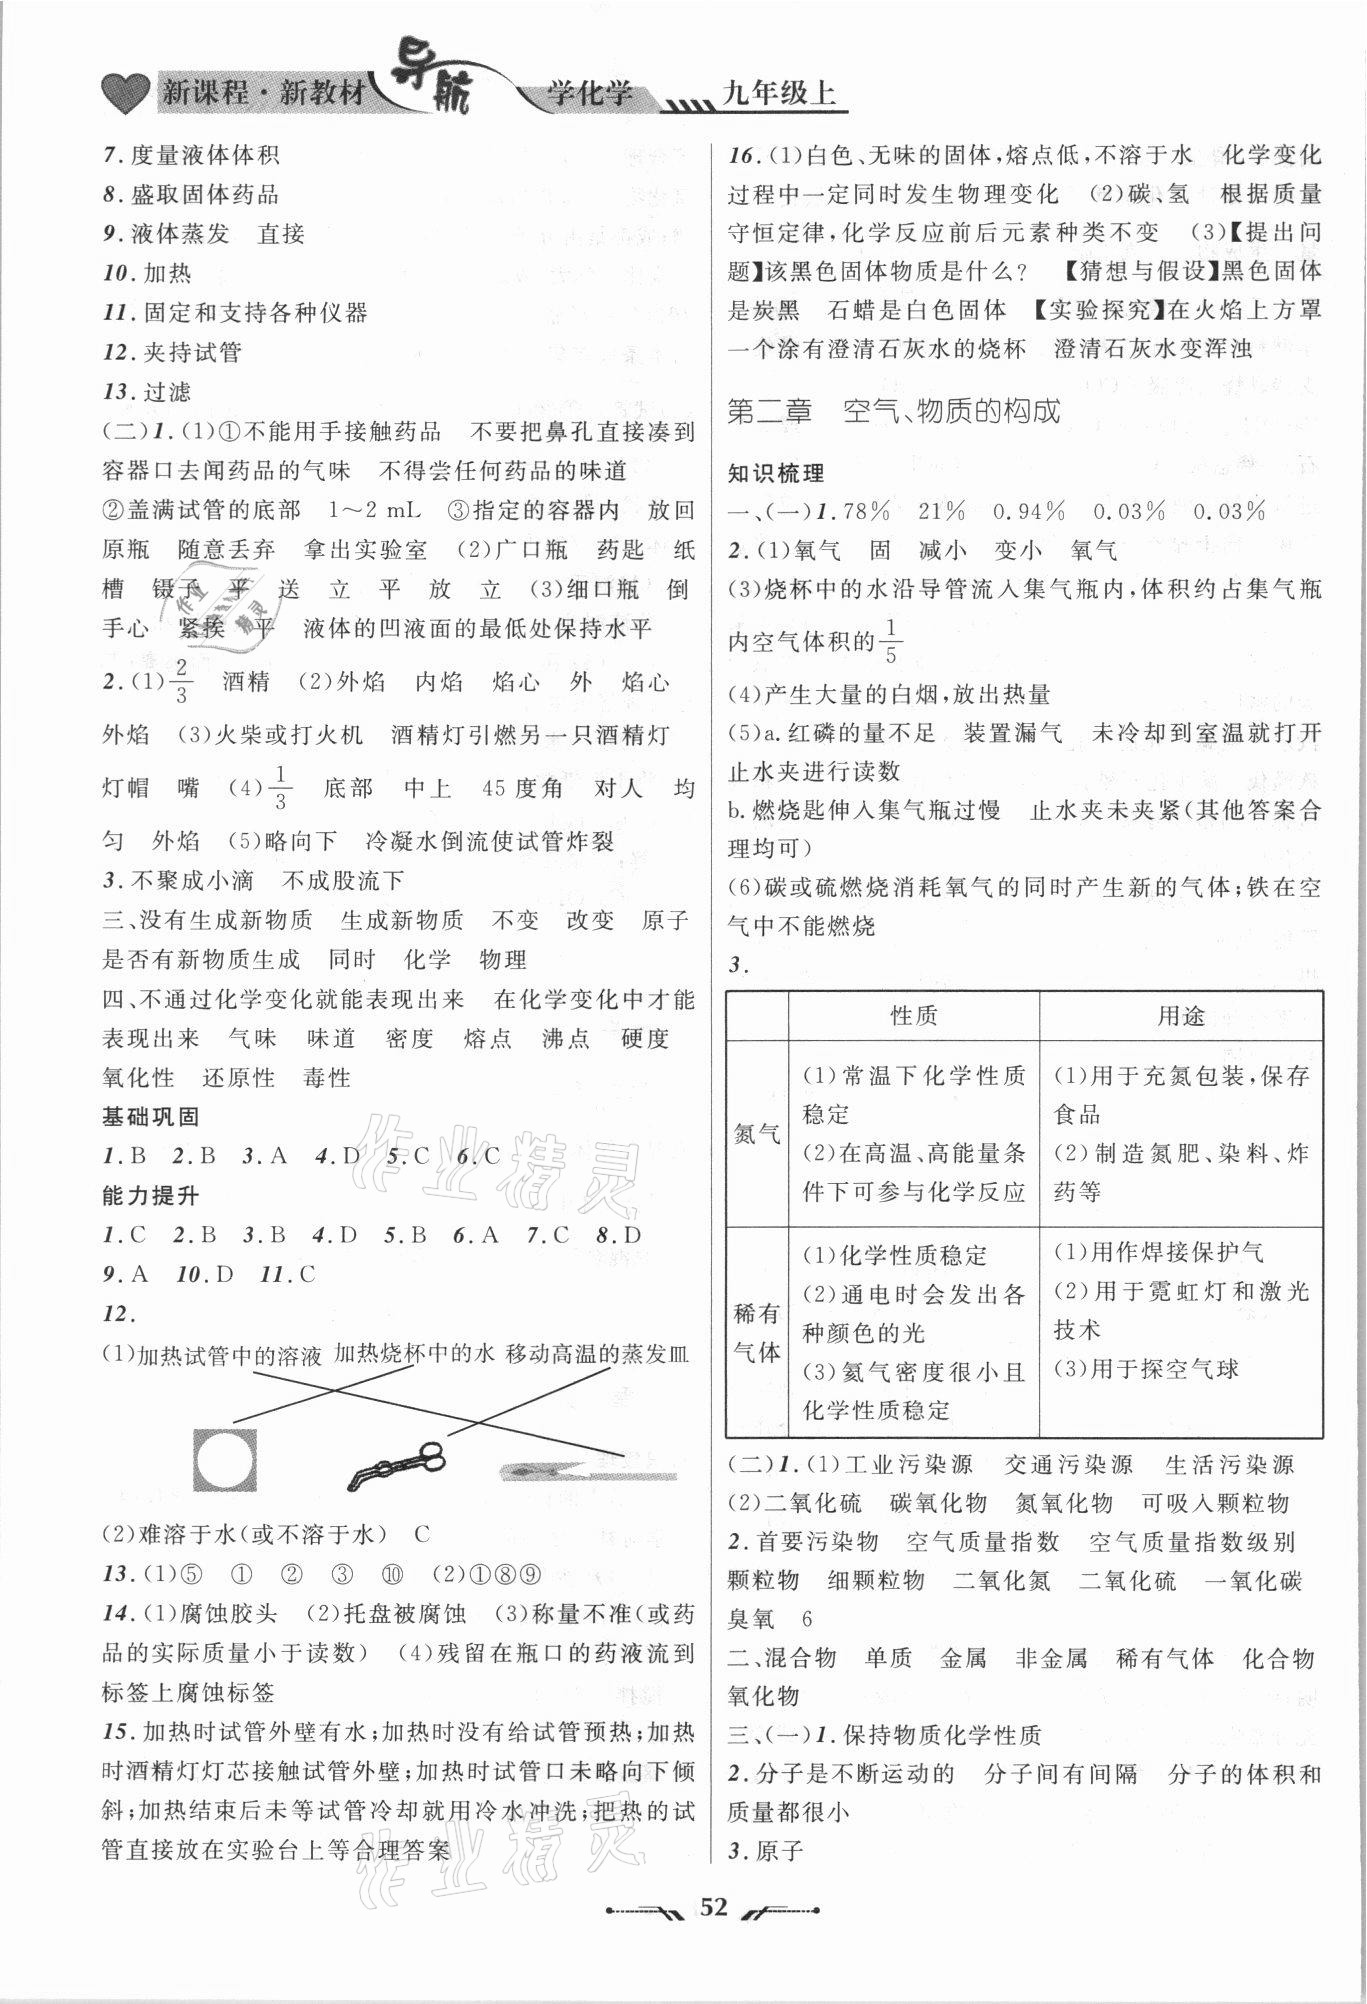 新课程·新教材 导航 学化学 九年级上
7.度量液体体积
8.盛取固体药品
9.液体蒸发 直接
10.加热
11.固定和支持各种仪器
12.夹持试管
13.过滤
(二)1.(1)①不能用手接触药品 不要把鼻孔直接凑到
容器口去闻药品的气味 不得尝任何药品的味道
②盖满试管的底部 1～2 mL ③指定的容器内 放回
原瓶 随意丢弃 拿出实验室 (2)广口瓶 药匙 纸
槽 镊子 平 送 立 平 放 立 (3)细口瓶 倒
手心 紧挨 平 液体的凹液面的最低处保持水平
2.(1)2/3 酒精 (2)外焰 内焰 焰心 外 焰心
外焰 (3)火柴或打火机 酒精灯引燃另一只酒精灯
灯帽 嘴 (4)1/3 底部 中上 45度角 对人 均
匀 外焰 (5)略向下 冷凝水倒流使试管炸裂
3.不聚成小滴 不成股流下
三、没有生成新物质 生成新物质 不变 改变 原子
是否有新物质生成 同时 化学 物理
四、不通过化学变化就能表现出来 在化学变化中才能
表现出来 气味 味道 密度 熔点 沸点 硬度
氧化性 还原性 毒性
基础巩固
1.B 2.B 3.A 4.D 5.C 6.C
能力提升
1.C 2.B 3.B 4.D 5.B 6.A 7.C 8.D
9.A 10.D 11.C
12.
(1)加热试管中的溶液 加热烧杯中的水 移动高温的蒸发皿
(2)难溶于水(或不溶于水) C
13.(1)⑤ ① ② ③ ⑩ (2)①⑧⑨
14.(1)腐蚀胶头 (2)托盘被腐蚀 (3)称量不准(或药
品的实际质量小于读数) (4)残留在瓶口的药液流到
标签上腐蚀标签
15.加热时试管外壁有水;加热时没有给试管预热;加热
时酒精灯灯芯接触试管外壁;加热时试管口未略向下倾
斜;加热结束后未等试管冷却就用冷水冲洗;把热的试
管直接放在实验台上等合理答案
16.(1)白色、无味的固体,熔点低,不溶于水 化学变化
过程中一定同时发生物理变化 (2)碳、氢 根据质量
守恒定律,化学反应前后元素种类不变 (3)【提出问
题】该黑色固体物质是什么? 【猜想与假设】黑色固体
是炭黑 石蜡是白色固体 【实验探究】在火焰上方罩
一个涂有澄清石灰水的烧杯 澄清石灰水变浑浊
第二章 空气、物质的构成
知识梳理
一、(一)1.78% 21% 0.94% 0.03% 0.03%
2.(1)氧气 固 减小 变小 氧气
(3)烧杯中的水沿导管流入集气瓶内,体积约占集气瓶
内空气体积的1/5
(4)产生大量的白烟,放出热量
(5)a.红磷的量不足 装置漏气 未冷却到室温就打开
止水夹进行读数
b.燃烧匙伸入集气瓶过慢 止水夹未夹紧(其他答案合
理均可)
(6)碳或硫燃烧消耗氧气的同时产生新的气体;铁在空
气中不能燃烧
3.
性质 用途
氮气
(1)常温下化学性质
稳定
(2)在高温、高能量条
件下可参与化学反应
(1)用于充氮包装,保存
食品
(2)制造氮肥、染料、炸
药等
稀有
气体
(1)化学性质稳定
(2)通电时会发出各
种颜色的光
(3)氦气密度很小且
化学性质稳定
(1)用作焊接保护气
(2)用于霓虹灯和激光
技术
(3)用于探空气球
(二)1.(1)工业污染源 交通污染源 生活污染源
(2)二氧化硫 碳氧化物 氮氧化物 可吸入颗粒物
2.首要污染物 空气质量指数 空气质量指数级别
颗粒物 细颗粒物 二氧化氮 二氧化硫 一氧化碳
臭氧 6
二、混合物 单质 金属 非金属 稀有气体 化合物
氧化物
三、(一)1.保持物质化学性质
2.分子是不断运动的 分子间有间隔 分子的体积和
质量都很小
3.原子
52
作业精灵
作业精灵
作业精灵